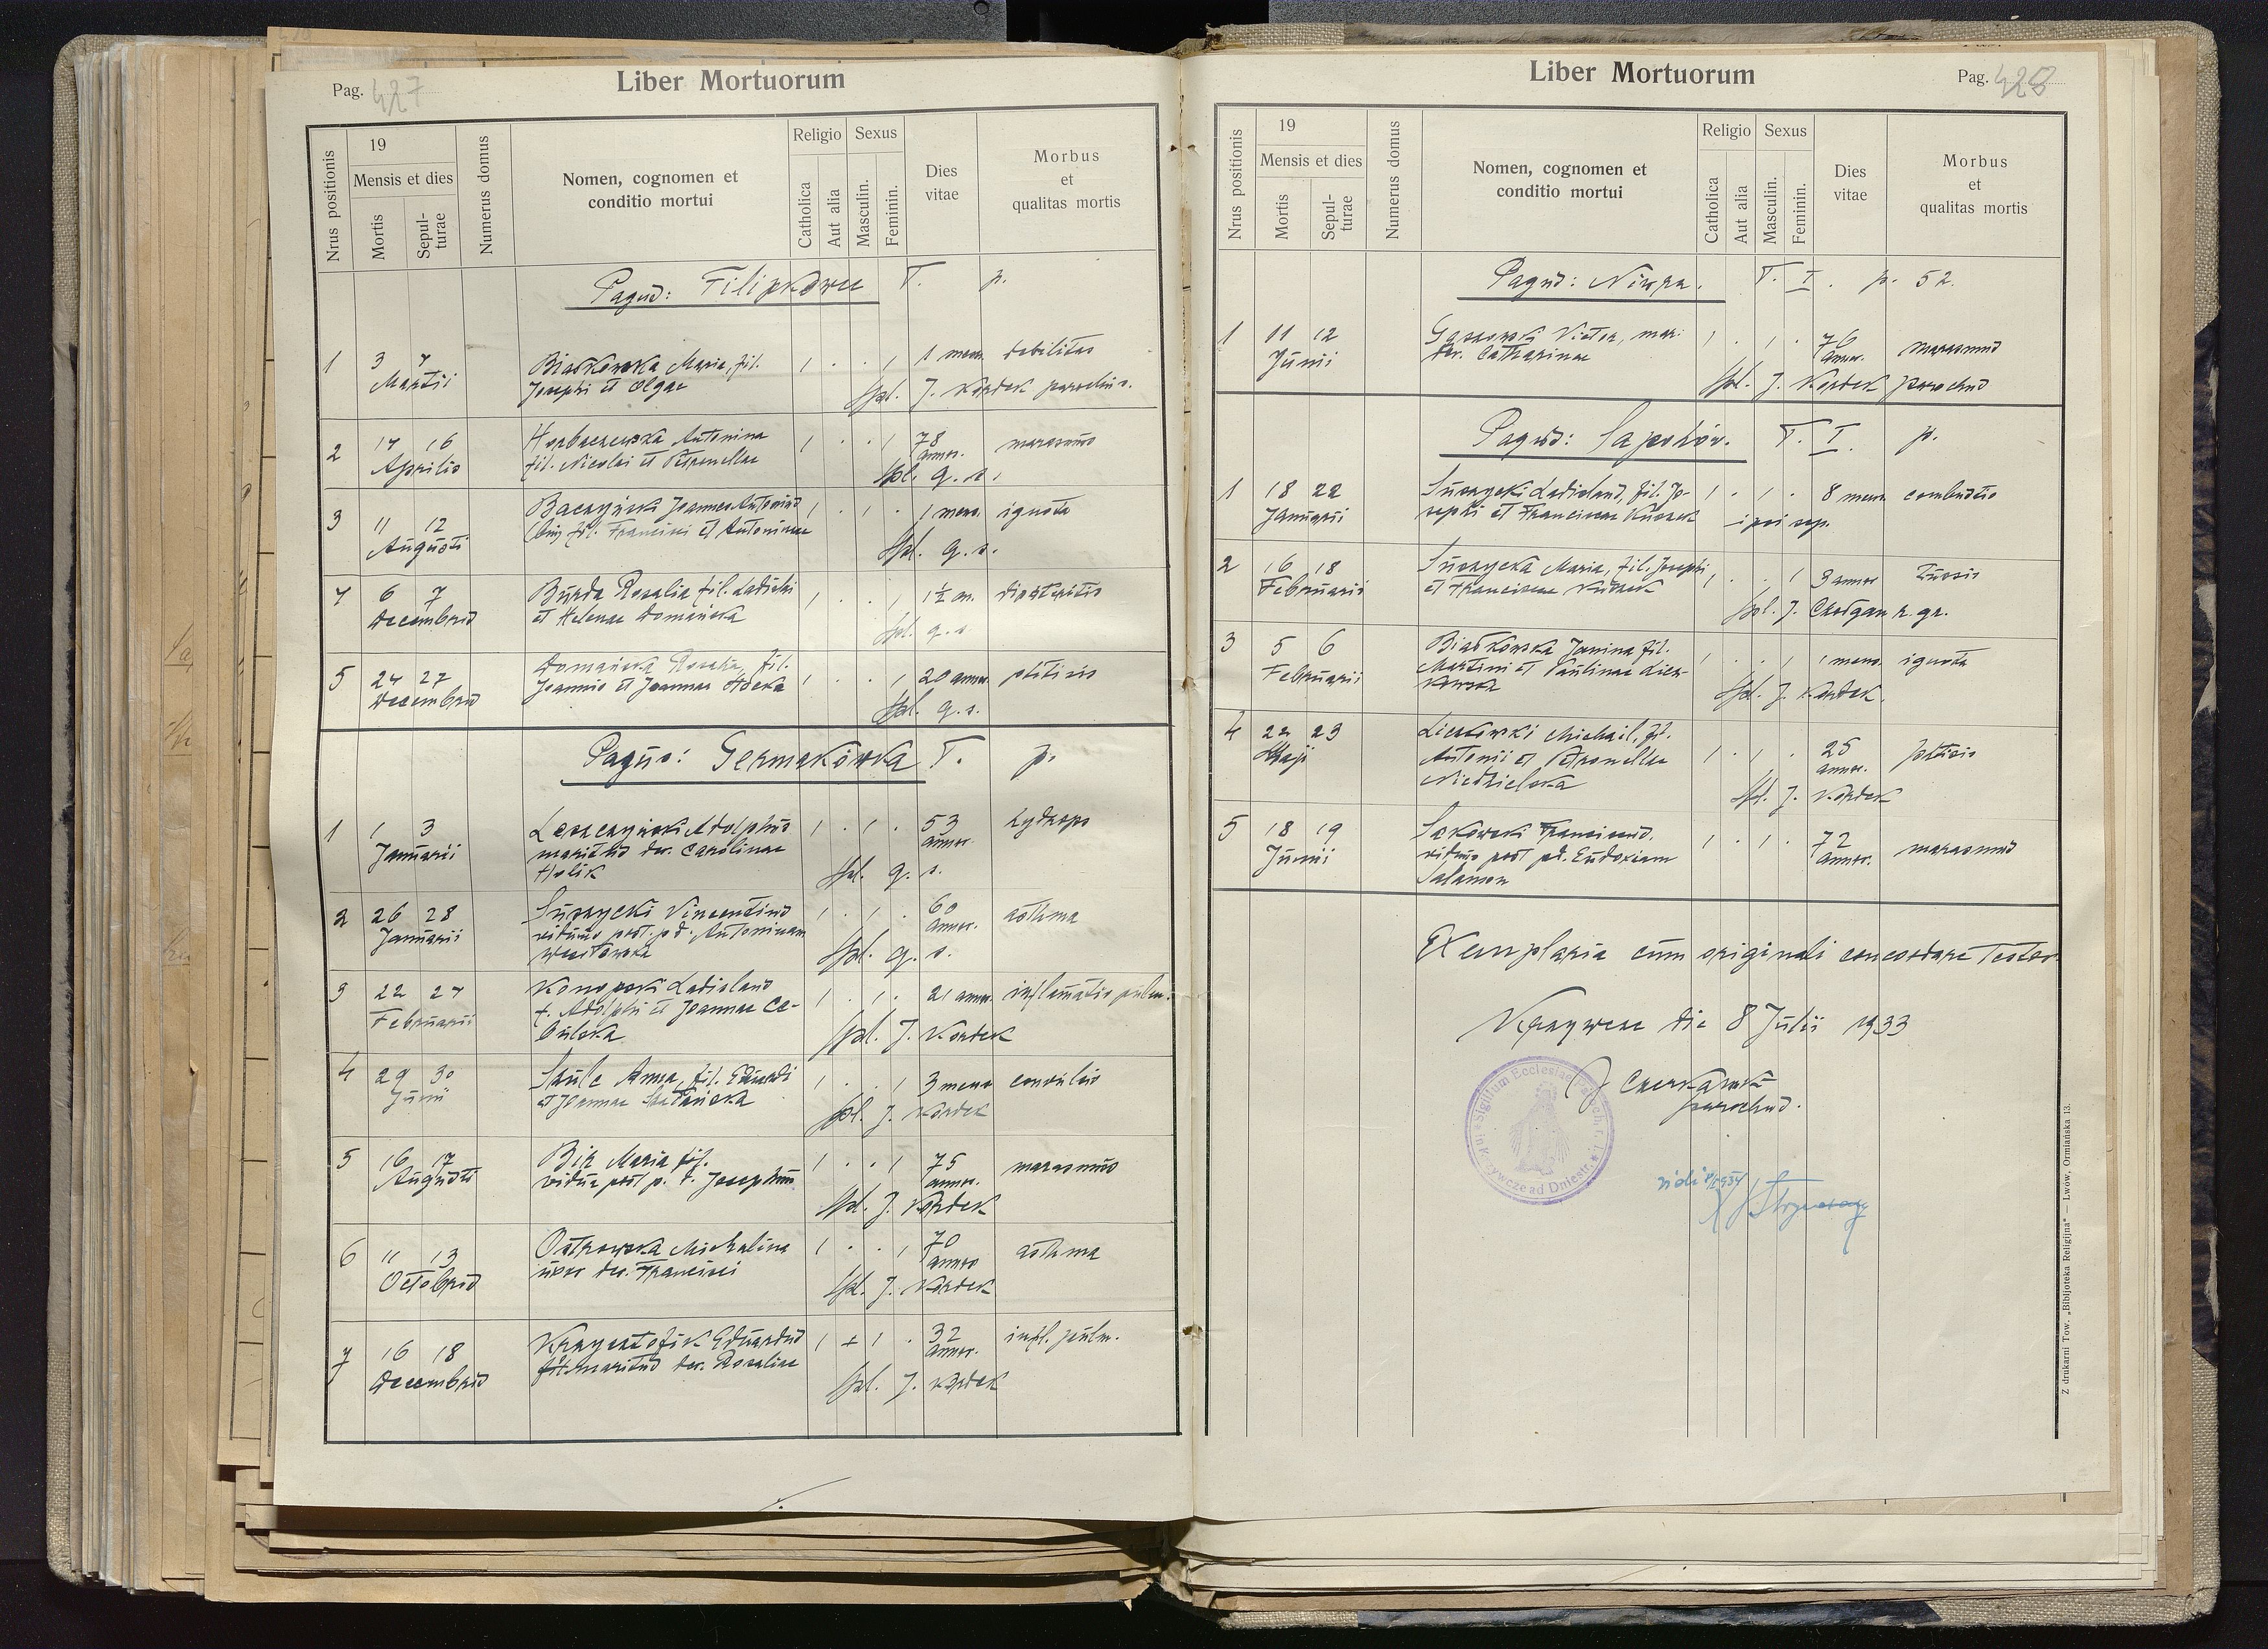 Pag. 427
Liber Mortuorum
Nrus positionis
19
Mensis et dies
Mortis
Sepul-
turae
Numerus domus
Nomen, cognomen et
conditio mortui
Religio
Catholica
Aut alia
Sexus
Masculin.
Feminin.
Dies
vitae
Morbus
et
qualitas mortis
Pagus: Filipkowce T. p.
1 3 4 Martii
Białkowska Maria, fil.
Josephi et Olgae
1 . . 1 1 mens. debilitas
Spl. J. Kordek parochus.
2 14 16 Aprilis
Horbaczewska Antonina
fil. Nicolai et Petronellae
1 . . 1 78 annor. marasmus
Spl. q. s.
3 11 12 Augusti
Baczyński Joannes Antonius
(bin) fil. Francisci et Antoninae
1 . 1 . 1 mens. ignota
Spl. q. s.
4 6 7 Decembris
Burda Rosalia fil. Ladislai
et Helenae Domańska
1 . . 1 1½ an.
Spl. q. s.
5 24 27 Decembris
Domańska Rosalia, fil.
Joannis et Joannae
1 . . 1 20 annor. phtisis
Spl. q. s.
Pagus: Germakówka T. p.
1 1 3 Januarii
Leszczyński Adolphus
maritus der. Carolinae
Holik
1 . 1 . 53 annor. hydrops
Spl. q. s.
2 26 28 Januarii
Suszycki Vincentius
viduus post. p d. Antoninam
1 . 1 . 60 annor. asthma
Spl. q. s.
3 22 24 Februarii
Konopski Ladislaus
f. Adolphi et Joannae Ce-
bulska
1 . 1 . 21 annor. inflamatio pulm.
Spl. J. Kordek
4 29 30 Junii
Anna, fil. Eduardi
et Joannae
1 . . 1 3 mens convulsio
Spl. J. Kordek
5 16 17 Augusti
Bik Maria fil.
vidua post p. d. Josephum
1 . . 1 75 annor. marasmus
Spl. J. Kordek
6 11 13 Octobris
Ostrowska Michalina
uxor der. Francisci
1 . . 1 70 annor asthma
Spl. J. Kordek
7 16 18 Decembris
Krzysztofik Eduardus
maritus der. Rosaliae
1 + 1 . 32 annor. infl. pulm.
Spl. J. Kordek
Liber Mortuorum
Pag. 428
Nrus positionis
19
Mensis et dies
Mortis
Sepul-
turae
Numerus domus
Nomen, cognomen et
conditio mortui
Religio
Catholica
Aut alia
Sexus
Masculin.
Feminin.
Dies
vitae
Morbus
et
qualitas mortis
Pagus: Niwra. T. I. p. 52.
1 11 12 Junii
Victor, mar.
der. Catharinae
1 . 1 . 76 annor. marasmus
Spl. J. Kordek parochus
Pagus: Sapohów. T. I. p.
1 18 22 Januarii
Suszycki Ladislaus, fil. Jo-
sephi et Franciscae Kuszek
1 . 1 . 8 mens combustio
ipsi sep.
2 16 18 Februarii
Suszycka Maria, fil. Josephi
et Franciscae
1 . . 1 3 annor tussis
Spl. J. r. gr.
3 5 6 Februarii
Białkowska Janina fil.
Martini et Paulinae Licz-
kowska
1 . . 1 1 mens. ignota
Spl. J. Kordek.
4 22 23 Maji
Liczkowski Michael, fil.
Antonii et Petronellae
Niedzielska
1 . 1 . 25 annor. phtisis
Spl. J. Kordek
5 18 19 Junii
Sokowski Franciscus.
viduus post pd. Eudoxiam
Salamon
1 . 1 . 72 annor. marasmus
Exemplaria cum originali concordare testor.
Krzywcze die 8 Julii 1933
J Czerkawski
parochus.
Sigillum Ecclesiae Paroch. r. l. Krzywcze ad Dniestr.
vidi 1934
Z drukarni Tow. „Bibljoteka Religijna" — Lwów, Ormiańska 13.